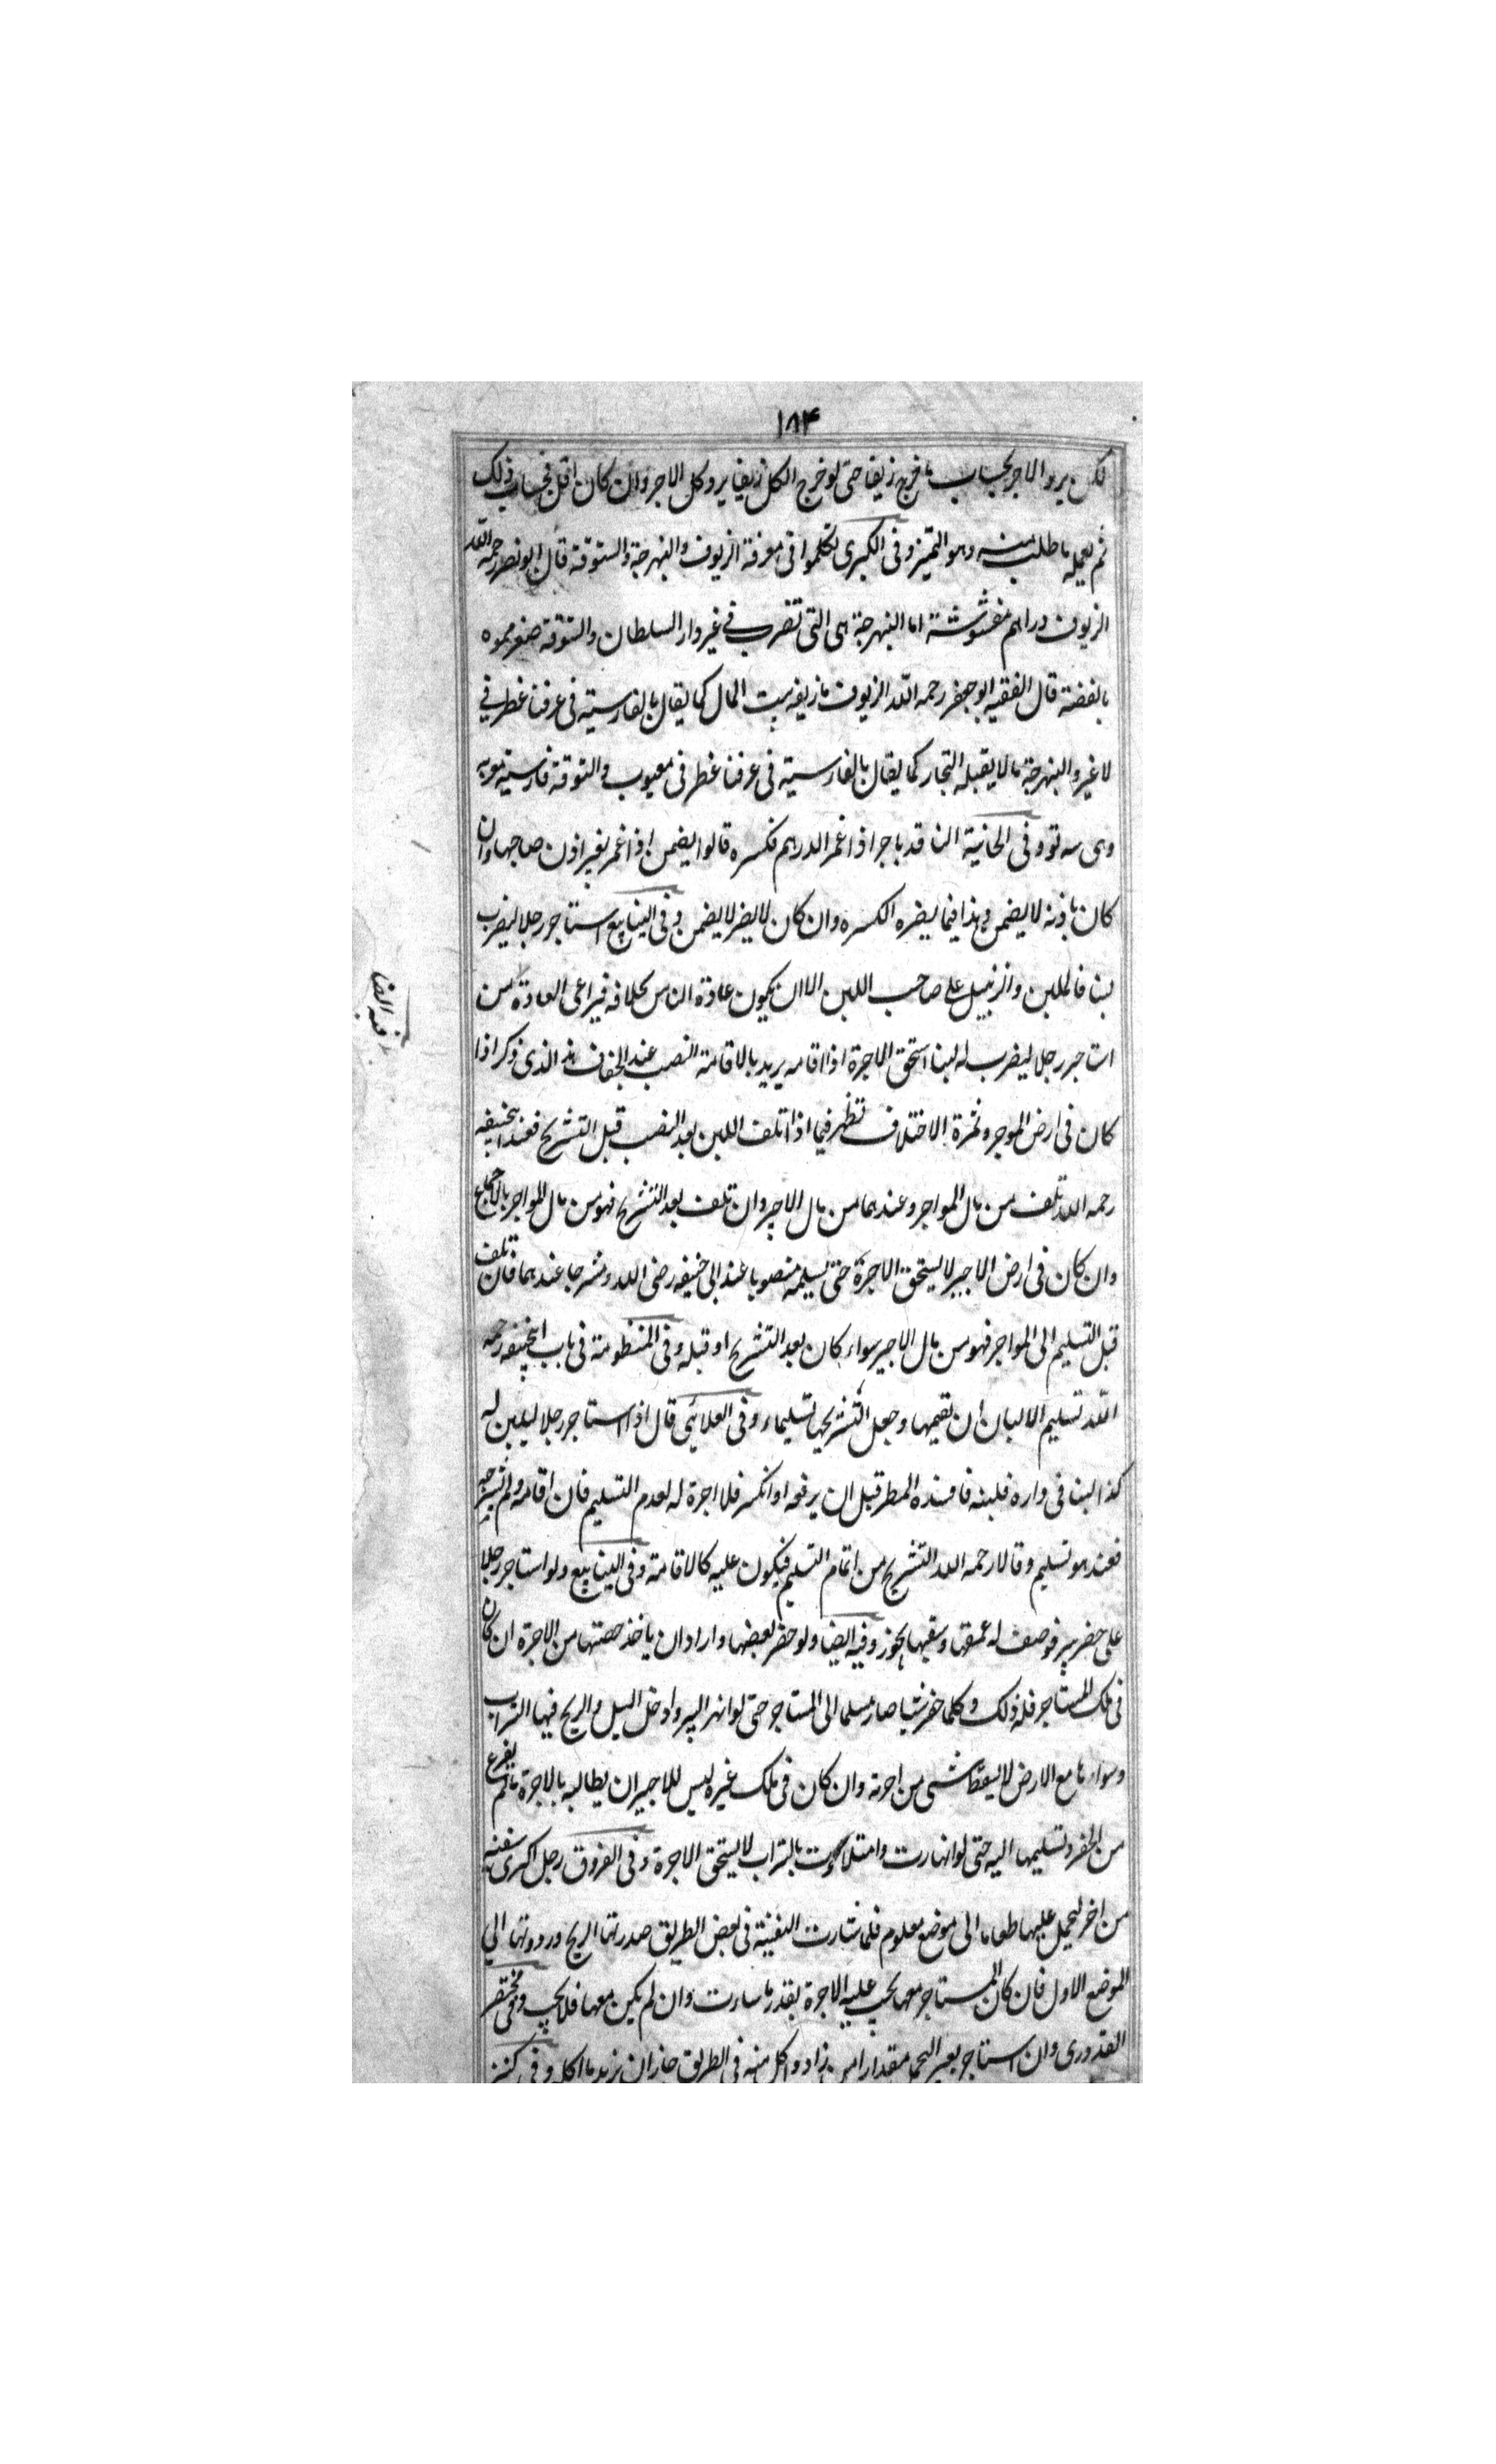 ١٨٤
لكن يرد الاجر بحساب ما خرج زيفا حتى لو خرج الكل زيفا يرد كل الاجر وان كان اقل فبحساب ذلك
ثم يعمله ما طلب منه وهو التميز وفى الكبرى تكلموا فى معرفة الزيوف والنبهرجة والستوقة قال ابو نصر رحمه الله
الزيوف دراهم مغشوشة اما النبهرجة هى التى تضرب فى غير دار السلطان والستوقة صفر مموه
بالفضة قال الفقيه ابو جعفر رحمه الله الزيوف ما زيفه بيت المال كما يقال بالفارسية فى عرفنا غطريفى
لا غير والنبهرجة ما لا يقبله التجار كما يقال بالفارسية فى عرفنا غطريفى معيوب والستوقة فارسية
وهى سه تو وفى الخانية الناقد باجر اذا غمز الدرهم فكسره قالوا يضمن اذا غمز بغير اذن صاحبها وان
كان باذنه لا يضمن وهذا فيما يضره الكسره وان كان لا يضر لا يضمن وفى الينابيع استاجر رجلا ليضرب
لبنا فالملبن والزنبيل على صاحب اللبن الا ان يكون عادة الناس بخلافه فيراعى العادة من
استاجر رجلا ليضرب له لبنا استحق الاجرة اذا اقامه يريد بالاقامة النصب عند الجفاف هذا الذى ذكر اذا
كان فى ارض الموجر وثمرة الاختلاف تظهر فيما اذا تلف اللبن بعد النصب قبل التشريح فعند ابيحنيفه
رحمه الله تلف من مال المواجر وعندهما من مال الاجير وان تلف بعد التشريح فهو من مال المواجر بالاجماع
وان كان فى ارض الاجير لا يستحق الاجرة حتى يسلمه منصوبا عند ابى حنيفه رضى الله ومشرجا عندهما فان تلف
قبل التسليم الى المواجر فهو من مال الاجير سواء كان بعد التشريح او قبله وفى المنظومة فى باب ابيحنيفه رحمه
الله تسليم الالبان ان تقيمها وجعل التشريحها تسليما وفى العلائى قال اذا استاجر رجلا ليلبن له
كذا لبنا فى داره فلبنه فافسده المطر قبل ان يرفعه او انكسر فلا اجرة له لعدم التسليم فان اقامه ولم يشرجه
فعنده هو تسليم وقالا رحمه الله التشريح من اتمام التسليم فيكون عليه كالاقامة وفى الينابيع ولو استاجر رجلا
على حفر بير فوصف له عمقها وسقيها يجوز وفيه ايضا ولو حفر بعضها واراد ان ياخذ حصتها من الاجرة ان كان
فى ملك المستاجر فله ذلك وكلما حفر شيا صار مسلما الى المستاجر حتى لو انهر البير وادخل السيل والريح فيها التراب
وسواء ها مع الارض لا يسقط شى من اجرته وان كان فى ملك غيره ليس للاجير ان يطالبه بالاجرة ما لم يفرغ
من الحفر وتسليمها اليه حتى لو انهارت وامتلاءت بالتراب لا يستحق الاجرة وفى الفروق رجل اكرى سفينه
من اخر ليحمل عليها طعاما الى موضع معلوم فلما سارت السفينة فى بعض الطريق الريح وردوتها الى
الموضع الاول فان كان المستاجر معها يجب عليه الاجرة بقدر ما سارت وان لم يكن معها فلا يجب وفى مختصر
القدورى وان استاجر بعير اليحمل مقدارا من زاد واكل منه فى الطريق جاز ان يزيد ما اكل وفى كنز